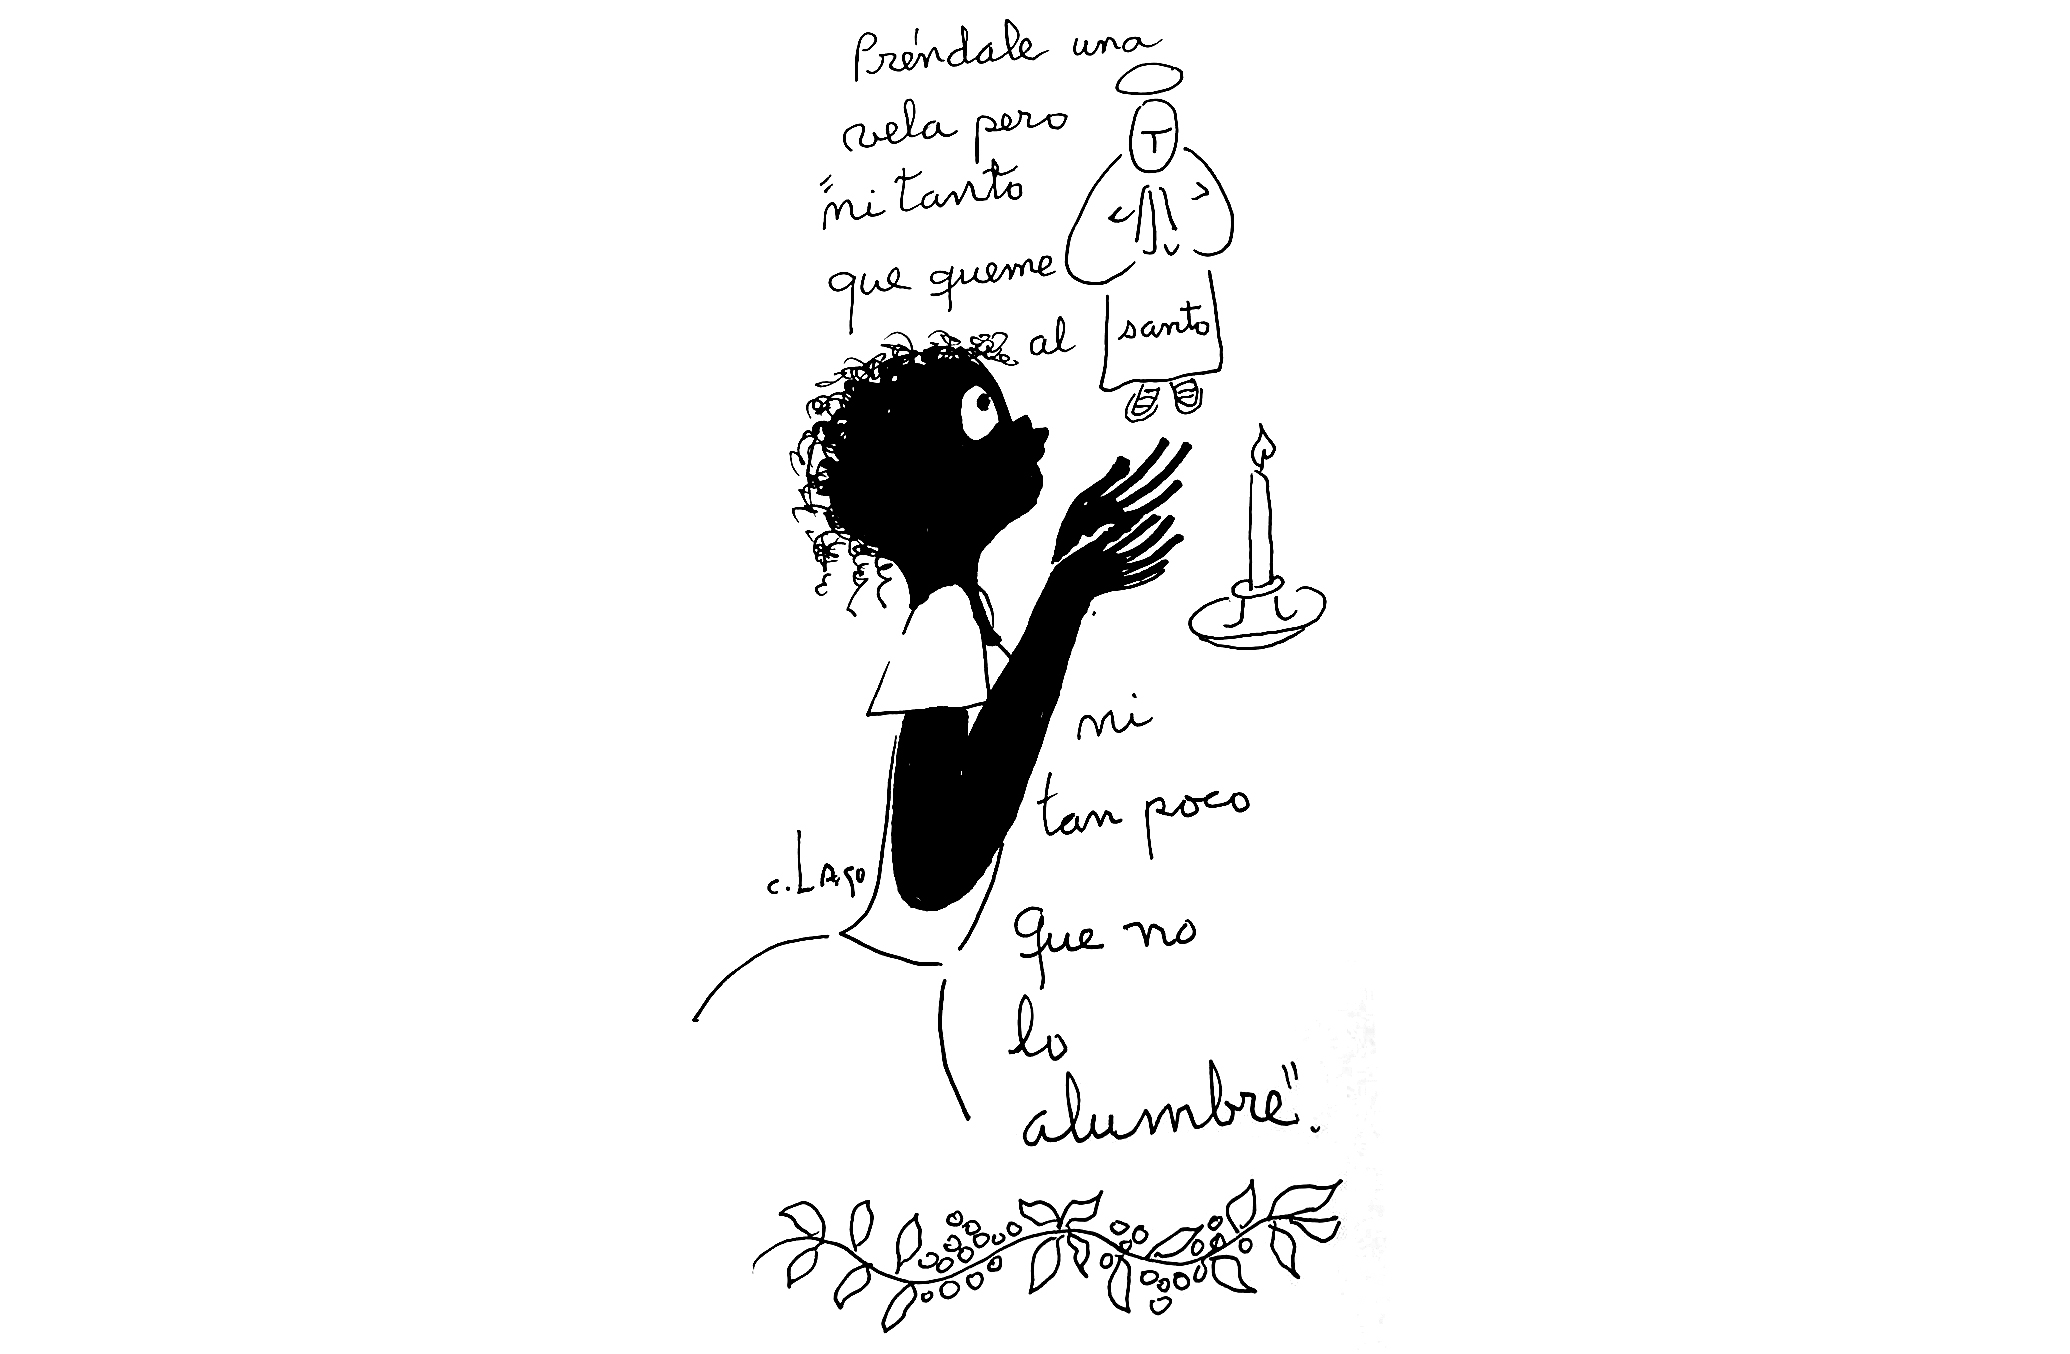 Préndale una
vela pero
"ni tanto
que queme
al santo
ni
tan poco
que no
lo
alumbre".
c. LAgo